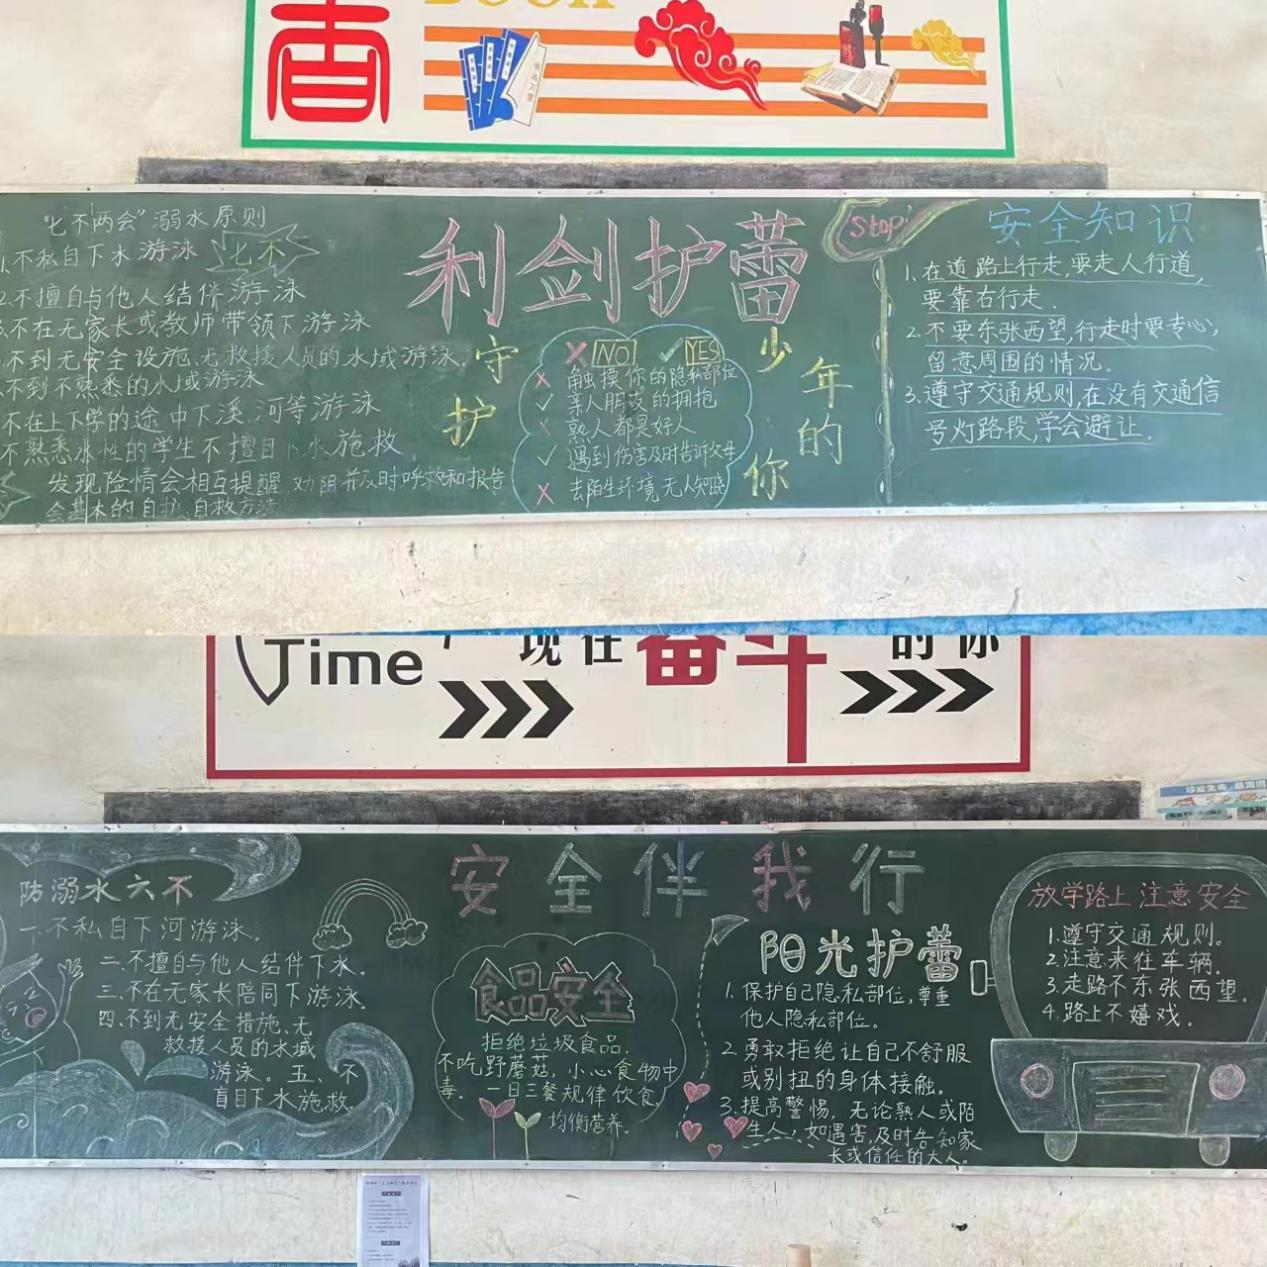 香
BOOK
“七不两会”溺水原则
1.不私自下水游泳
七不
2.不擅自与他人结伴游泳
3.不在无家长或教师带领下游泳
不到无安全设施、无救援人员的水域游泳
不到不熟悉的水域游泳
不在上下学的途中下溪、河等游泳
不熟悉水性的学生不擅自下水施救
发现险情会相互提醒 劝阻并及时呼救和报告
会基本的自护、自救方法
利剑护蕾
守护
少年的你
× NO ✓ YES
× 触摸你的隐私部位
✓ 亲人朋友的拥抱
× 熟人都是好人
✓ 遇到伤害及时告诉父母
× 去陌生环境无人知晓
Stop!
安全知识
1.在道路上行走,要走人行道,
要靠右行走.
2.不要东张西望,行走时要专心,
留意周围的情况.
3.遵守交通规则,在没有交通信
号灯路段,学会避让.
Time 现在奋斗的你
安全伴我行
防溺水六不
一.不私自下河游泳.
二.不擅自与他人结伴下水.
三.不在无家长陪同下游泳.
四.不到无安全措施、无
救援人员的水域
游泳。五、不
盲目下水施救
食品安全
拒绝垃圾食品.
不吃野蘑菇,小心食物中
毒.一日三餐规律饮食
均衡营养.
阳光护蕾
1.保护自己隐私部位,尊重
他人隐私部位。
2.勇敢拒绝让自己不舒服
或别扭的身体接触.
3.提高警惕,无论熟人或陌
生人,如遇害,及时告知家
长或信任的大人。
放学路上 注意安全
1.遵守交通规则。
2.注意来往车辆.
3.走路不东张西望.
4.路上不嬉戏.